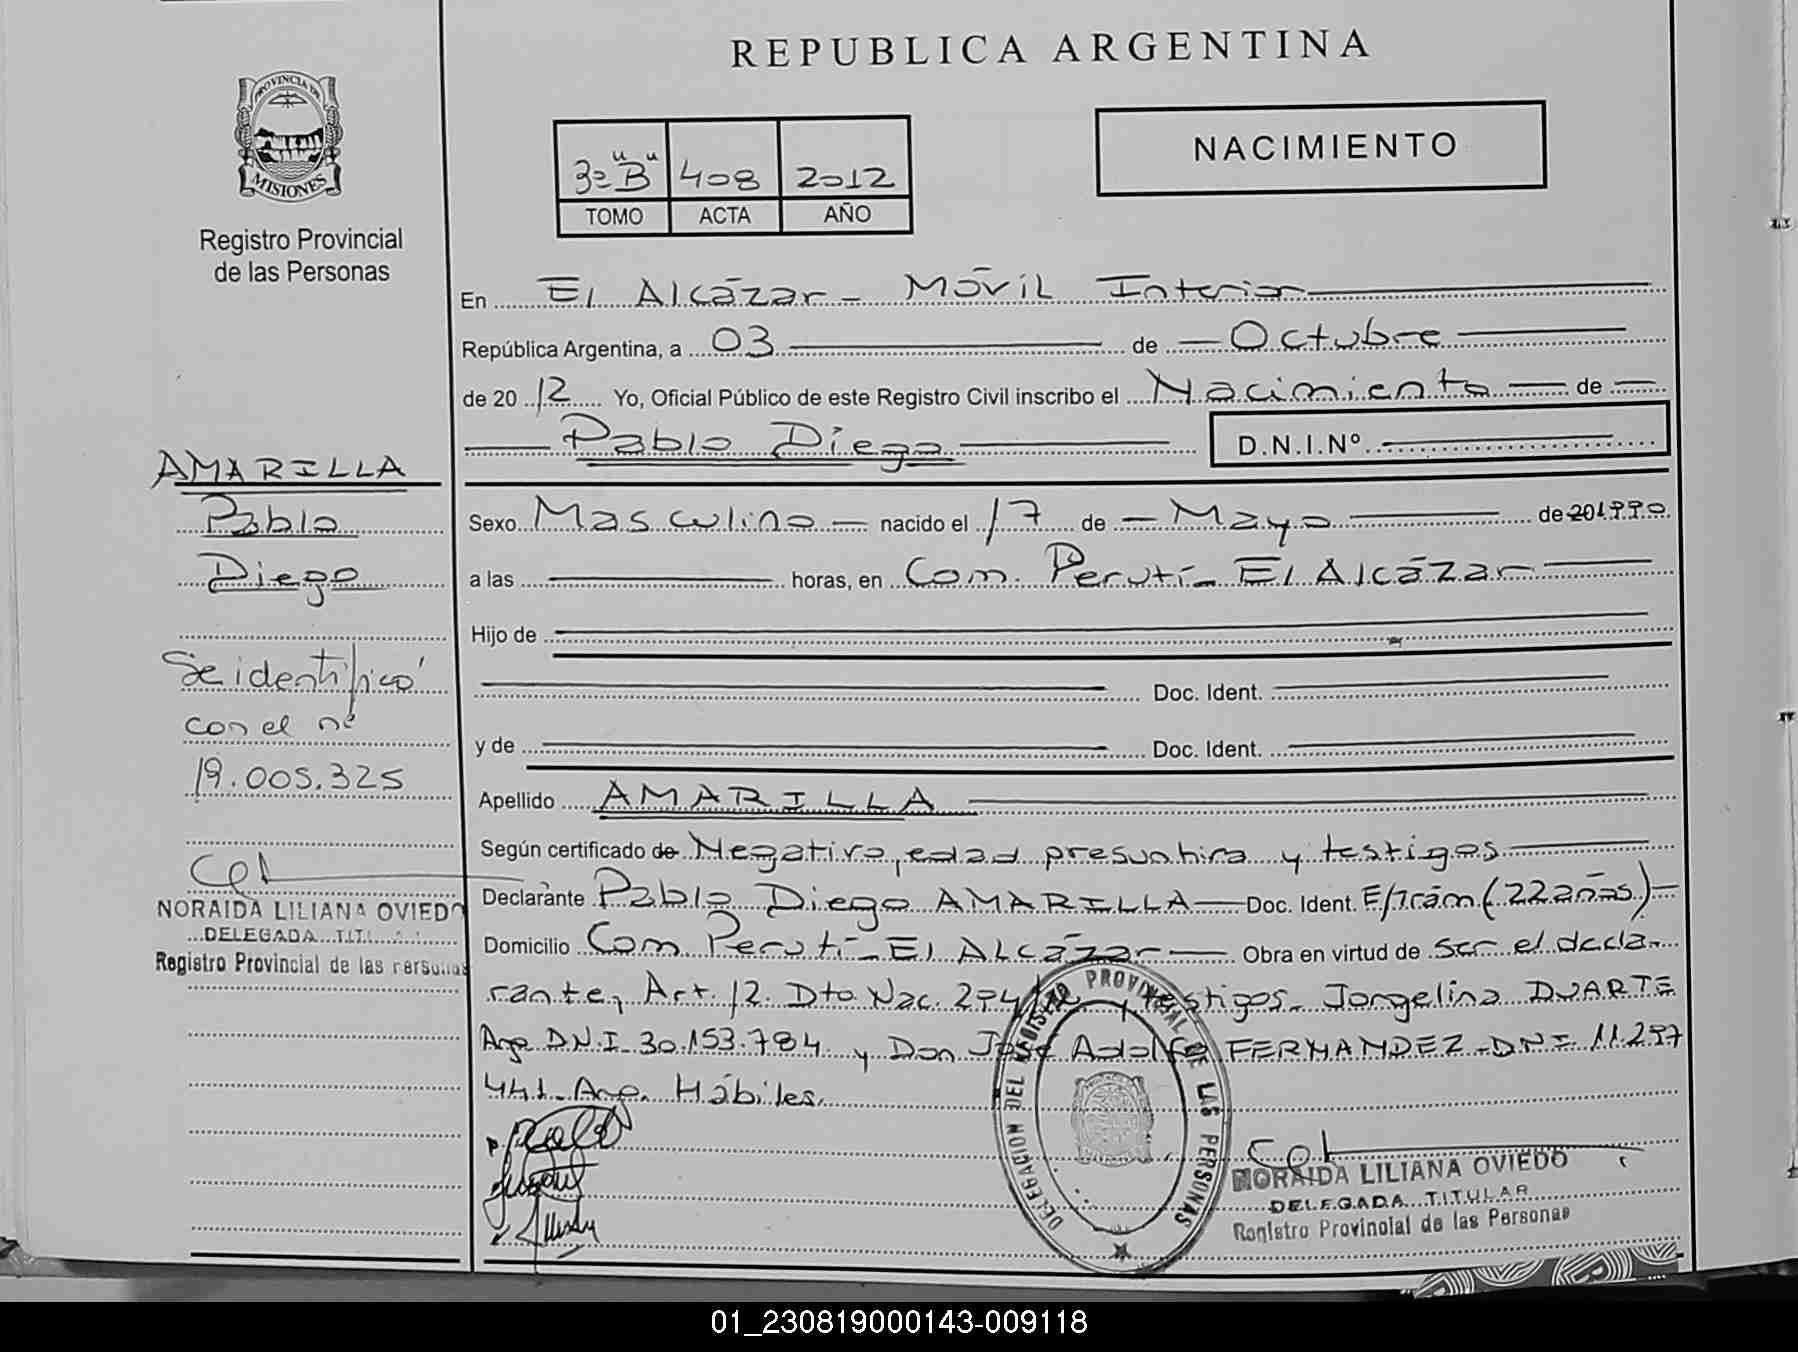 REPUBLICA ARGENTINA
PROVINCIA DE
MISIONES
Registro Provincial
de las Personas
3º "B" 408 2012
TOMO ACTA AÑO
NACIMIENTO
En El Alcázar - Móvil Interior
República Argentina, a 03 de Octubre
de 2012 Yo, Oficial Público de este Registro Civil inscribo el Nacimiento de
Pablo Diego D.N.I.Nº
Sexo Masculino nacido el 17 de Mayo de 1990
a las horas, en Com. Perutí - El Alcázar
Hijo de
Doc. Ident.
y de Doc. Ident.
Apellido AMARILLA
Según certificado de Negativo, edad presuntiva y testigos
Declarante Pablo Diego AMARILLA Doc. Ident. E/Trám (22 años)
Domicilio Com. Perutí - El Alcázar Obra en virtud de ser el decla-
rante, Art. 12. Dto. Nac. y testigos. Jorgelina DUARTE
Arg. D.N.I. 30.153.784 y Don José Adolfo FERNANDEZ - DNI 11.297
441 - Arg. Hábiles.
AMARILLA
Pablo
Diego
Se identificó
con el nº
19.005.325
NORAIDA LILIANA OVIEDO
DELEGADA TIT
Registro Provincial de las Personas
DELEGACION DEL REGISTRO PROVINCIAL DE LAS PERSONAS
NORAIDA LILIANA OVIEDO
DELEGADA TITULAR
Registro Provincial de las Personas
01_230819000143-009118